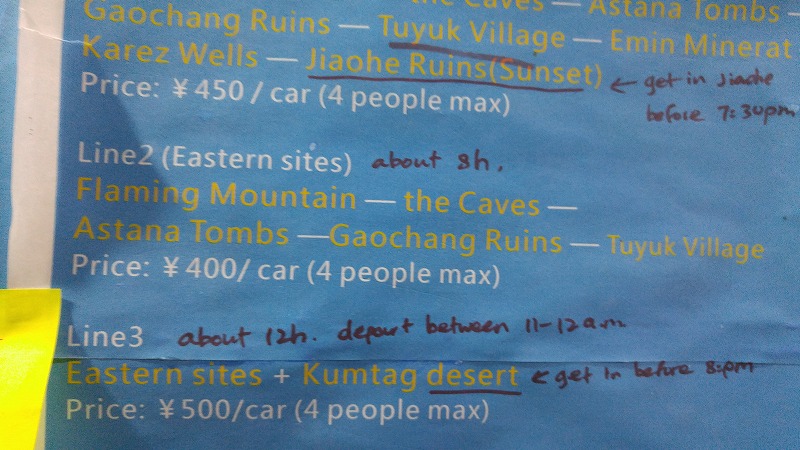 the Caves — Astana Tombs —
Gaochang Ruins — Tuyuk Village — Emin Minerat
Karez Wells — Jiaohe Ruins(Sunset) ← get in Jiaohe
before 7:30pm
Price: ¥450/car (4 people max)
Line2 (Eastern sites) about 8h.
Flaming Mountain — the Caves —
Astana Tombs —Gaochang Ruins — Tuyuk Village
Price: ¥400/car (4 people max)
Line3 about 12h. depart between 11-12am
Eastern sites + Kumtag desert ← get in before 8:pm
Price: ¥500/car (4 people max)